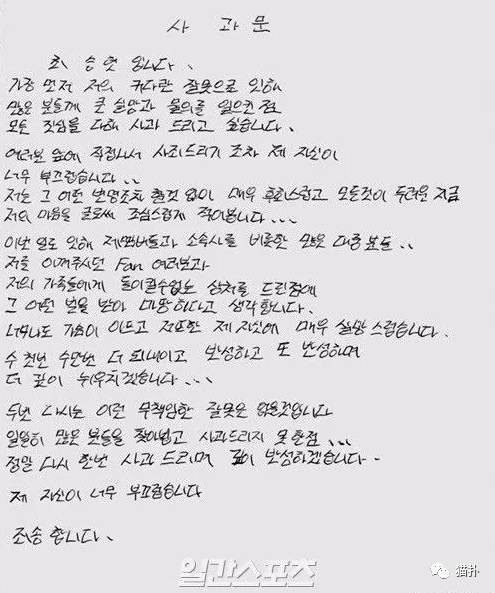 사 과 문
최 승 현 입니다.
가장 먼저 저의 커다란 잘못으로 인해
많은 분들께 큰 실망과 물의를 일으킨 점
모든 진심을 다해 사과 드리고 싶습니다.
여러분 앞에 직접나서 사죄드리기 조차 제 자신이
너무 부끄럽습니다..
저는 그 어떤 변명조차 할것 없이 매우 후회스럽고 모든것이 두려운 지금
저의 마음을 글로써 조심스럽게 적어봅니다...
이번 일로 인해 제멤버들과 소속사를 비롯한 많은 대중 분들..
저를 아껴주시던 Fan 여러분과
저의 가족들에게 돌이킬수없는 상처를 드린점에
그 어떤 벌을 받아 마땅하다고 생각합니다.
너무나도 가슴이 아프고 저또한 제 자신에 매우 실망 스럽습니다.
수 천번 수만번 더 되내이고 반성하고 또 반성하며
더 깊이 뉘우치겠습니다...
두번 다시는 이런 무책임한 잘못은 없을것입니다
일일히 많은 분들을 찾아뵙고 사과드리지 못한점...
정말 다시 한번 사과 드리며 깊이 반성하겠습니다.
제 자신이 너무 부끄럽습니다
죄송 합니다.
일간스포츠
猫扑